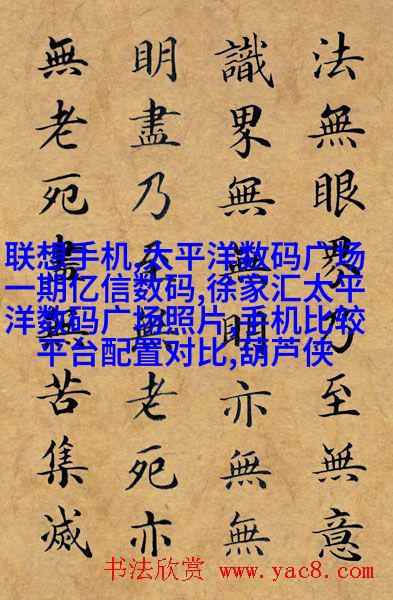 法無眼界乃至無意
識界無無明亦無無
明盡乃至無老死亦
無老死盡無苦集滅
联想手机,太平洋数码广场
一期亿信数码,徐家汇太平
洋数码广场照片,手机比较
平台配置对比,葫芦侠
书法欣赏 www.yac8.com